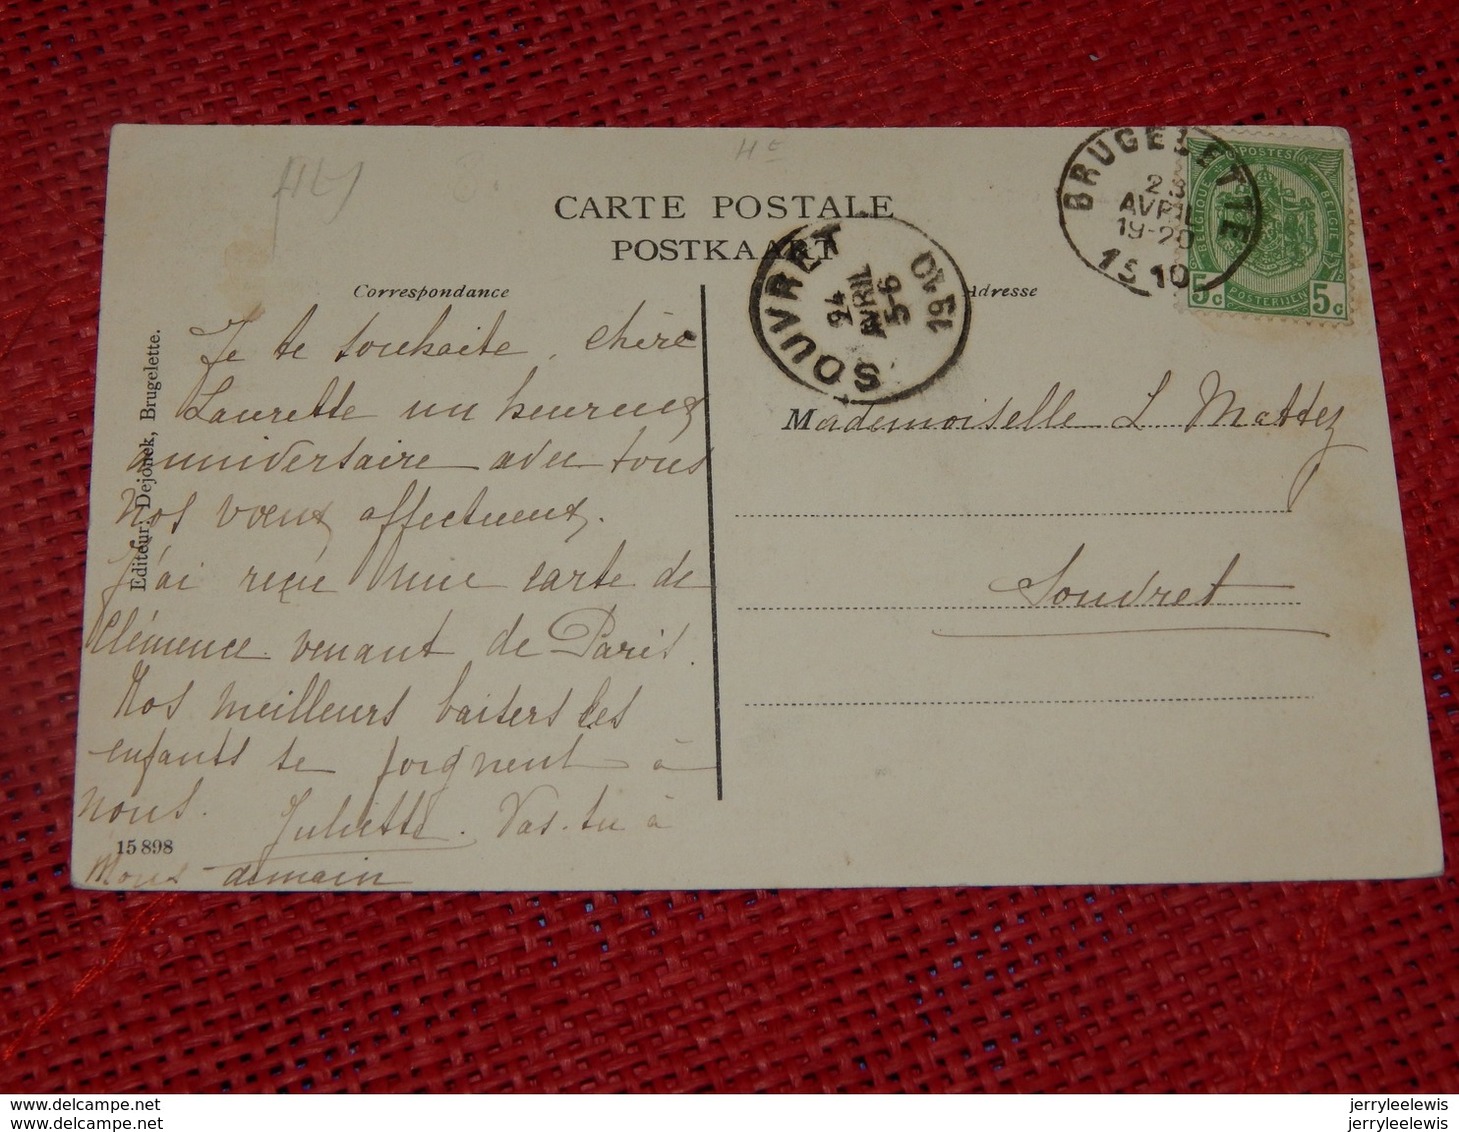 CARTE POSTALE
POSTKAART
Correspondance
Adresse
BRUGELETTE
23
AVRIL
19-20
1910
BELGIQUE
POSTES
BELGIË
5c POSTERIJEN 5c
SOUVRET
24
AVRIL
5-6
1910
Je te souhaite, chère
Laurette un heureux
anniversaire avec tous
Nos voeux affectueux.
J'ai reçu une carte de
Clémence venant de Paris.
Nos meilleurs baisers les
enfants se joignent à
nous. Juliette. Vas-tu à
Mons demain
Mademoiselle L Mattez
Souvret
Editeur: Dejonek, Brugelette.
15898
delcampe.net
jerryleelewis
delcampe.net
jerryleelewis